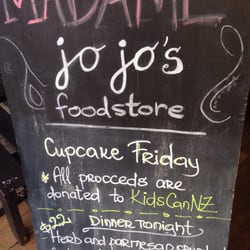 MADAME
jo jo's
foodstore
Cupcake Friday
* All procceds are
donated to KidsCanNZ
$22 Dinner tonight
Herb and parmesan